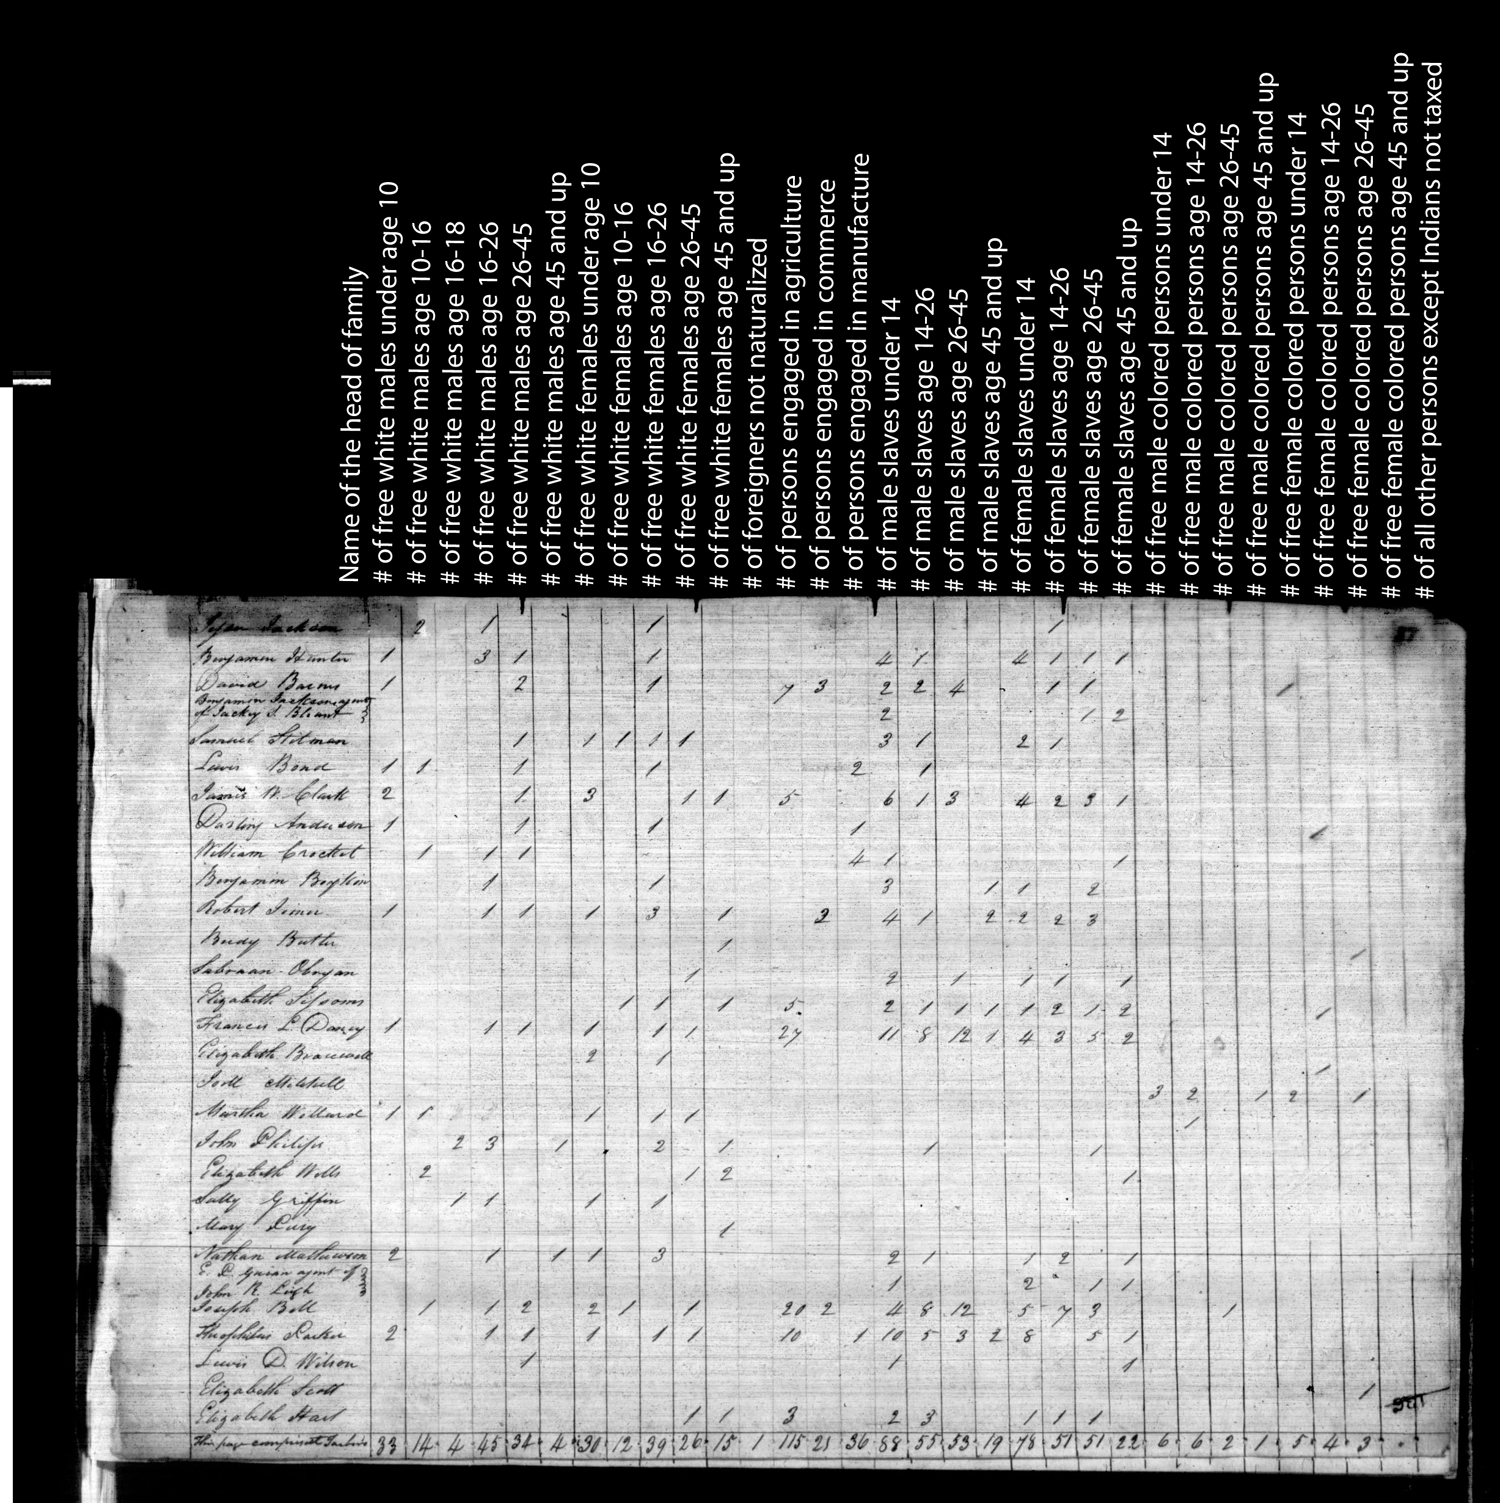 Name of the head of family
# of free white males under age 10
# of free white males age 10-16
# of free white males age 16-18
# of free white males age 16-26
# of free white males age 26-45
# of free white males age 45 and up
# of free white females under age 10
# of free white females age 10-16
# of free white females age 16-26
# of free white females age 26-45
# of free white females age 45 and up
# of foreigners not naturalized
# of persons engaged in agriculture
# of persons engaged in commerce
# of persons engaged in manufacture
# of male slaves under 14
# of male slaves age 14-26
# of male slaves age 26-45
# of male slaves age 45 and up
# of female slaves under 14
# of female slaves age 14-26
# of female slaves age 26-45
# of female slaves age 45 and up
# of free male colored persons under 14
# of free male colored persons age 14-26
# of free male colored persons age 26-45
# of free male colored persons age 45 and up
# of free female colored persons under 14
# of free female colored persons age 14-26
# of free female colored persons age 26-45
# of free female colored persons age 45 and up
# of all other persons except Indians not taxed
Jackson 2 1 1 1
Benjamin Hunter 1 3 1 1 4 1 4 1 1 1
David Barnes 1 2 1 7 3 2 2 4 1 1 1
Benjamin Jackson agent
of Jackey S. Blount 2 1 2
Samuel 1 1 1 1 1 3 1 2 1
Lewis Bond 1 1 1 1 2 1
James W. Clark 2 1 3 1 1 5 6 1 3 4 2 3 1
Darling Anderson 1 1 1 1 1
William Crocket 1 1 1 4 1 1
Benjamin Boykin 1 1 3 1 1 2
Robert Joiner 1 1 1 1 3 1 2 4 1 2 2 2 3
Butler 1
1 1 2 1 1 1 1
Elizabeth Sessoms 1 1 1 5 2 1 1 1 1 2 1 2
Francis L. Dancy 1 1 1 1 1 1 27 11 8 12 1 4 3 5 2
Elizabeth Braswell 2 1
Mitchell 3 2 1 2 1
Martha Willard 1 1 1 1 1 1
John Philips 2 3 1 2 1 1 1
Elizabeth Wells 2 1 2 1
Sally Griffin 1 1 1 1
Mary 1
Nathan Mathewson 2 1 1 1 3 2 1 1 2 1
agent of
John R. Leigh 1 2 1 1
Joseph Bell 1 1 2 2 1 1 20 2 4 8 12 5 7 3 1
Theophilus Parker 2 1 1 1 1 1 10 1 10 5 3 2 8 5 1
Lewis D. Wilson 1 1 1
Elizabeth Scott 1
Elizabeth Hart 1 1 3 2 3 1 1 1
This page 33 14 4 45 34 4 30 12 39 26 15 1 115 21 36 88 55 53 19 78 51 51 22 6 6 2 1 5 4 3